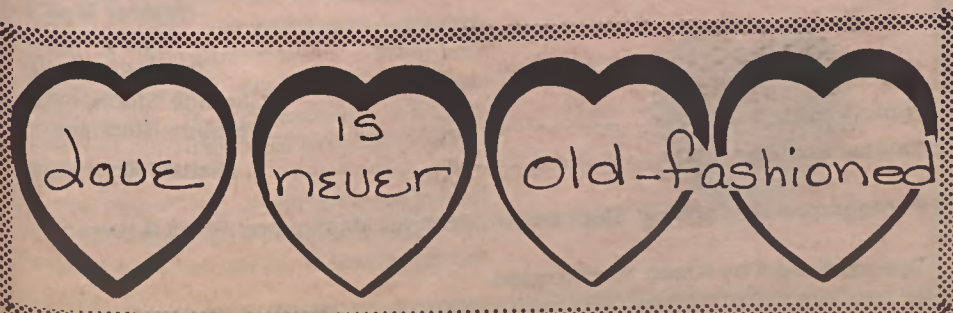 Love is never Old-fashioned